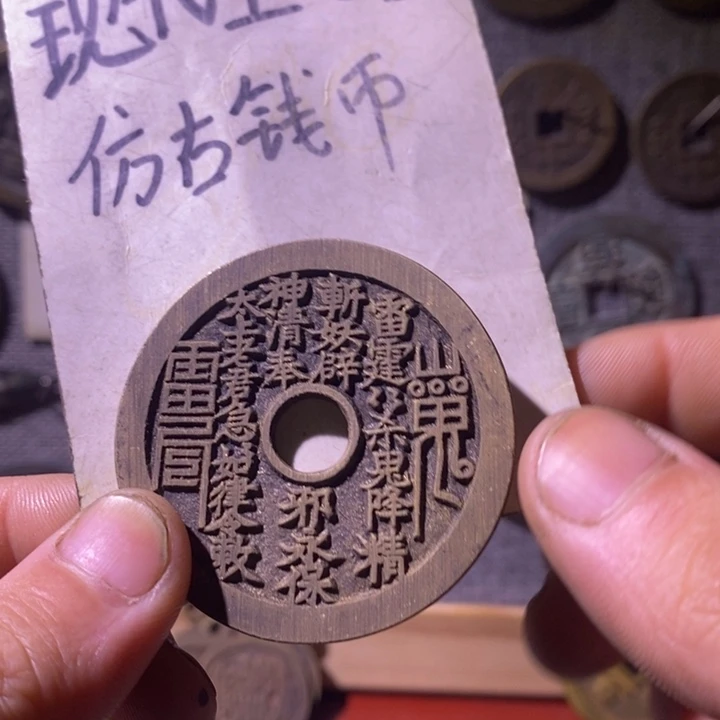 现代工
仿古钱币
雷霆〻杀鬼降精
斬妖辟邪永保
神清奉
太上老君急如律令敕